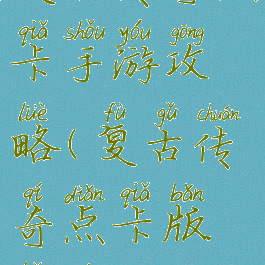 qiǎ shǒu yóu gōng
卡手游攻
lüè fù gǔ chuán
略(复古传
qí diǎn qiǎ bǎn
奇点卡版